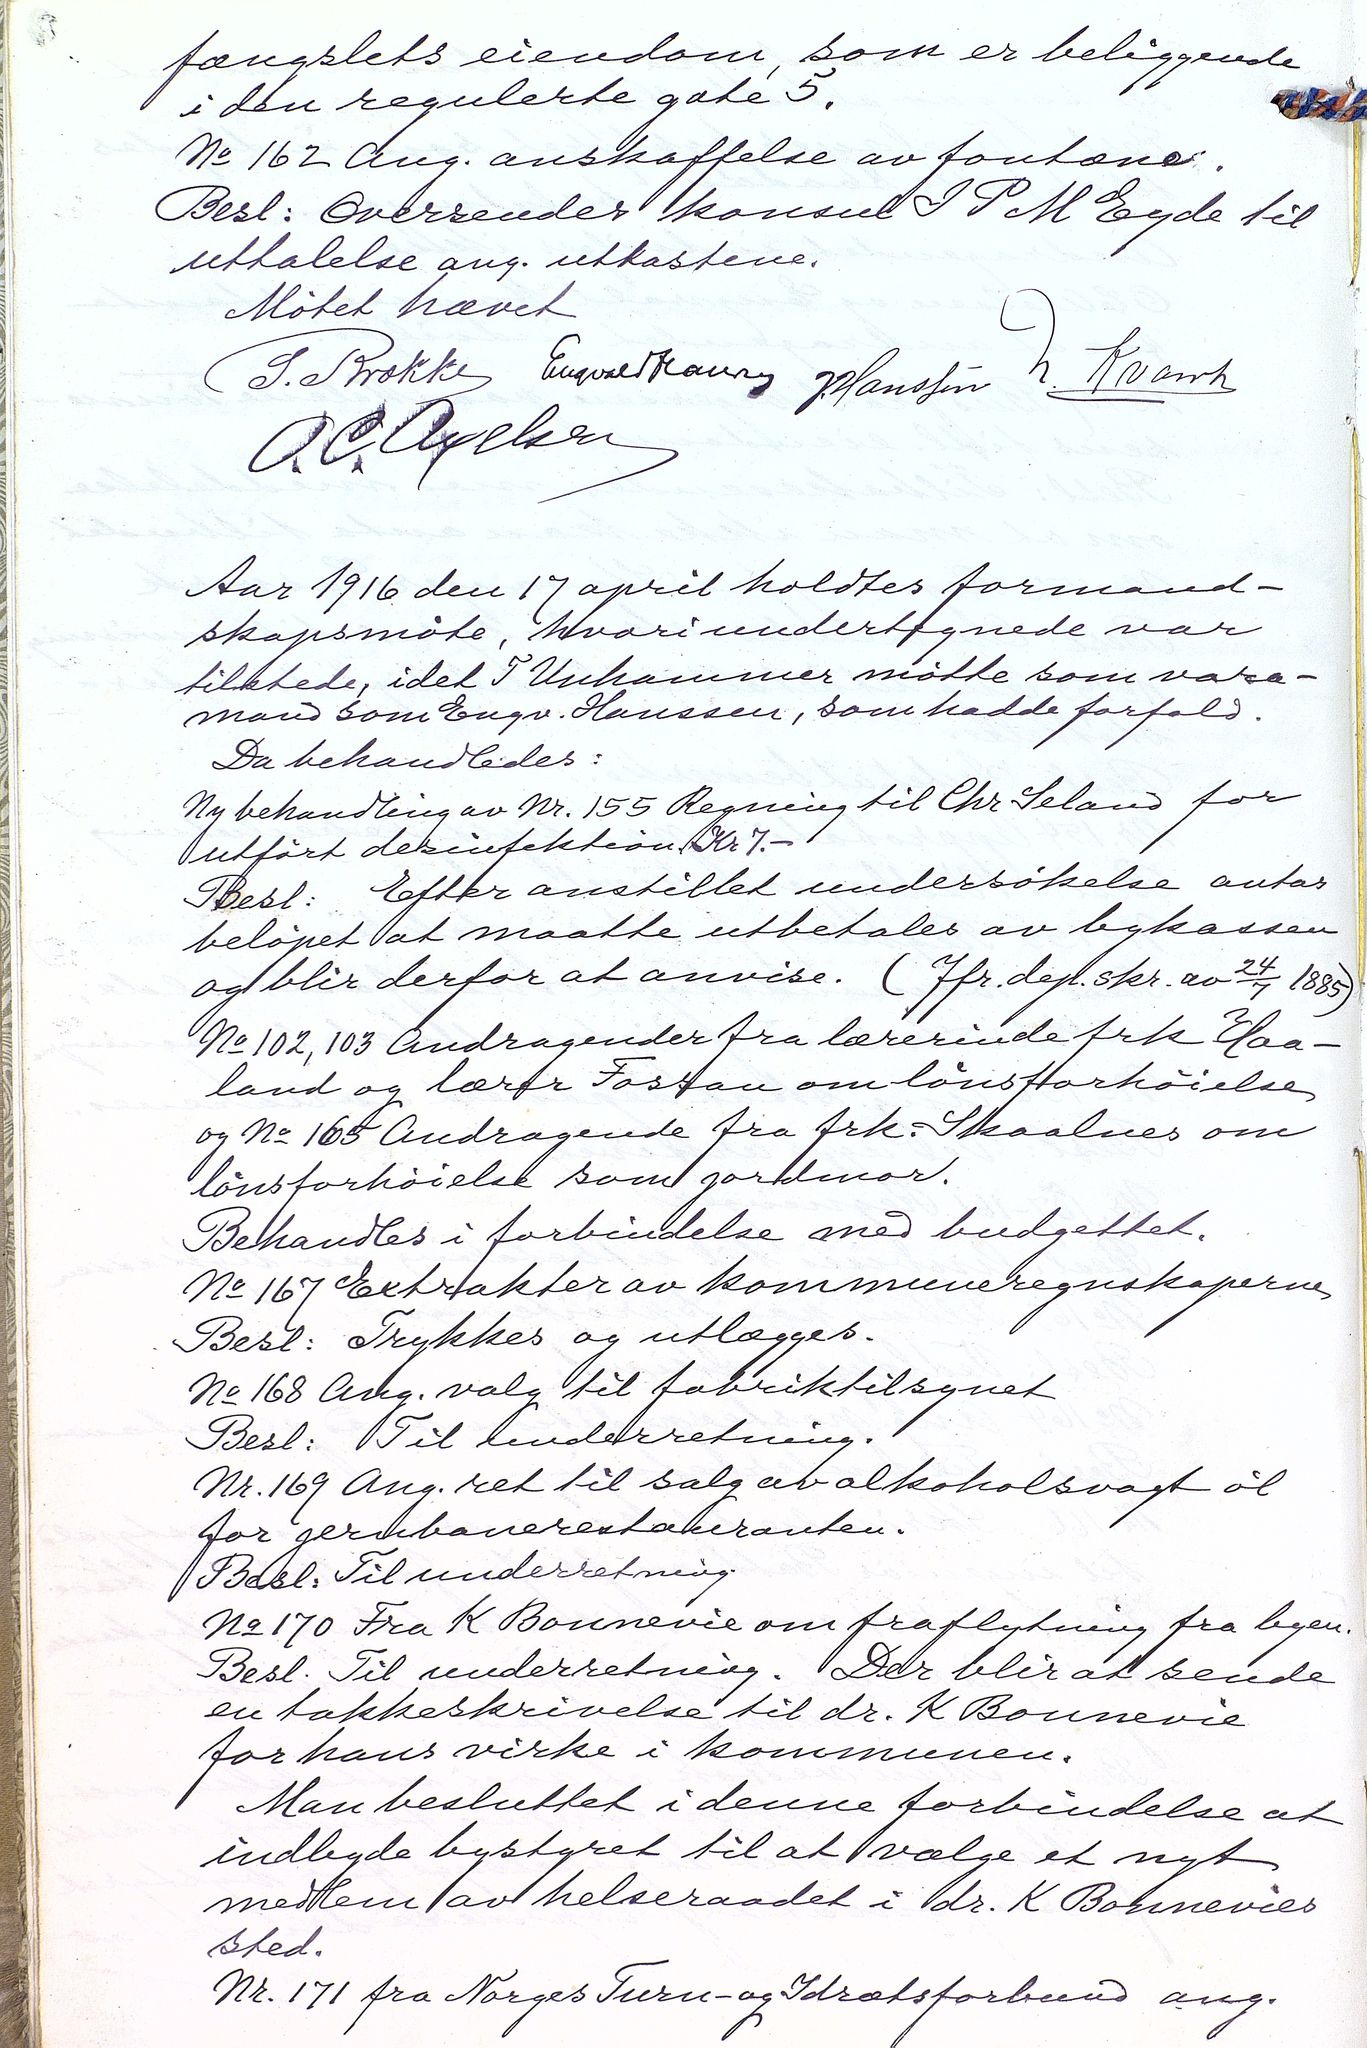 fængslets eiendom, som er beliggende
i den regulerte gate 5.
No 162 Ang. anskaffelse av fontæne.
Besl: Oversendes konsul I P M Eyde til
uttalelse ang. utkastene.
Møtet hævet
S. Brokke Hanssen N. Kvarek
O. C. Axelsen
Aar 1916 den 17 april holdtes formand-
skapsmöte, hvori undertegnede var
tilstede, idet T Unhammer mötte som vara-
mand som Engv. Hanssen, som hadde forfald.
Da behandledes:
Ny behandling av Nr. 155 Regning til Chr Seland for
utfört desinfektion Kr 7.-
Besl: Efter anstillet undersökelse antas
belöpet at maatte utbetales av bykassen
og blir derfor at anvise. (Jfr. dep. skr. av 24/7 1885)
No 102, 103 Andragender fra lærerinde frk Haa-
land og lærer Fostau om lönsforhöielse
og No 165 Andragende fra frk. Skaalnes om
lönsforhöielse som jordmor.
Behandles i forbindelse med budgettet.
No 167 Extrakter av kommuneregnskaperne
Besl: Trykkes og utlægges.
No 168 Ang. valg til fabriktilsynet
Besl: Til underretning.
Nr. 169 Ang. ret til salg av alkoholsvagt öl
for jernbanerestauranten.
Besl: Til underretning
No 170 Fra K Bonnevie om fraflytning fra byen.
Besl. Til underretning. Der blir at sende
en takkeskrivelse til dr. K Bonnevie
for hans virke i kommunen.
Man besluttet i denne forbindelse at
indbyde bystyret til at vælge et nyt
medlem av helseraadet i dr. K Bonnevies
sted.
Nr. 171 fra Norges Turn- og Idrætsforbund ang.